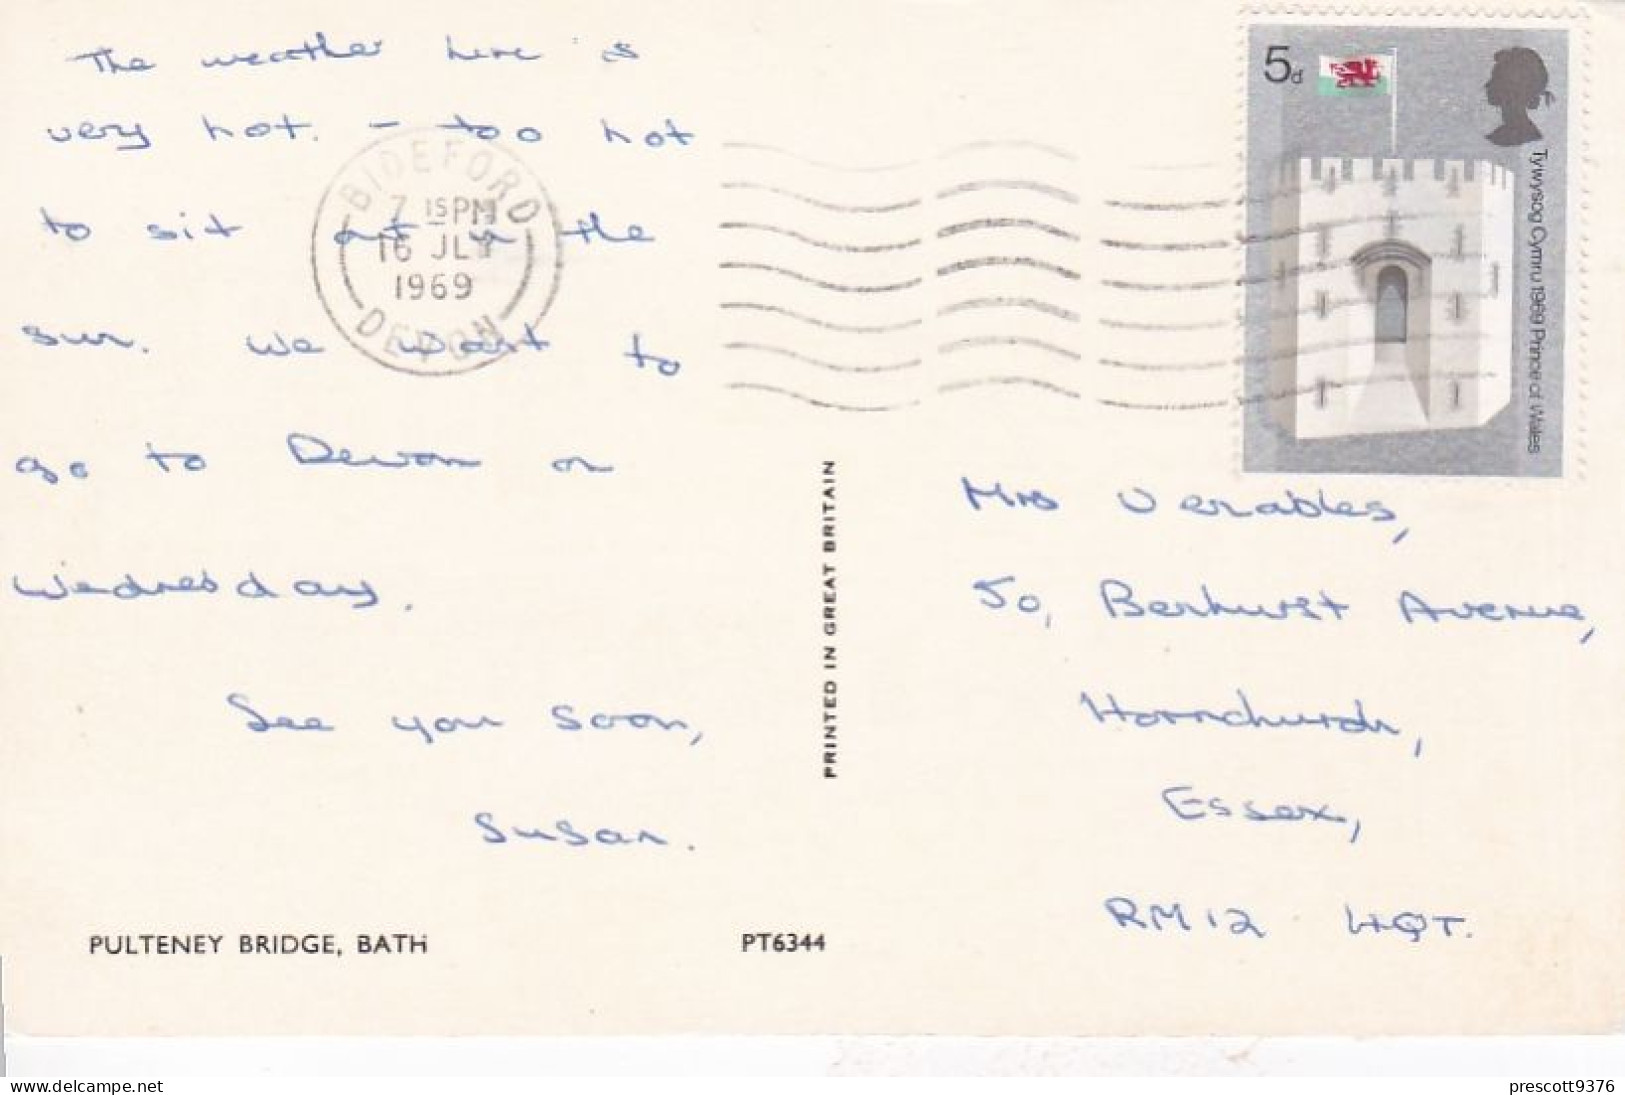 The weather here is
very hot. - too hot
to sit out in the
sun. We want to
go to Devon on
Wednesday.
See you soon,
Susan.
PULTENEY BRIDGE, BATH
PT6344
PRINTED IN GREAT BRITAIN
BIDEFORD
7 15 PM
16 JLY
1969
DEVON
5d
Tywysog Cymru 1969 Prince of Wales
Mrs Venables,
50, Berhurst Avenue,
Hornchurch,
Essex,
RM12 4QT.
www.delcampe.net
prescott9376